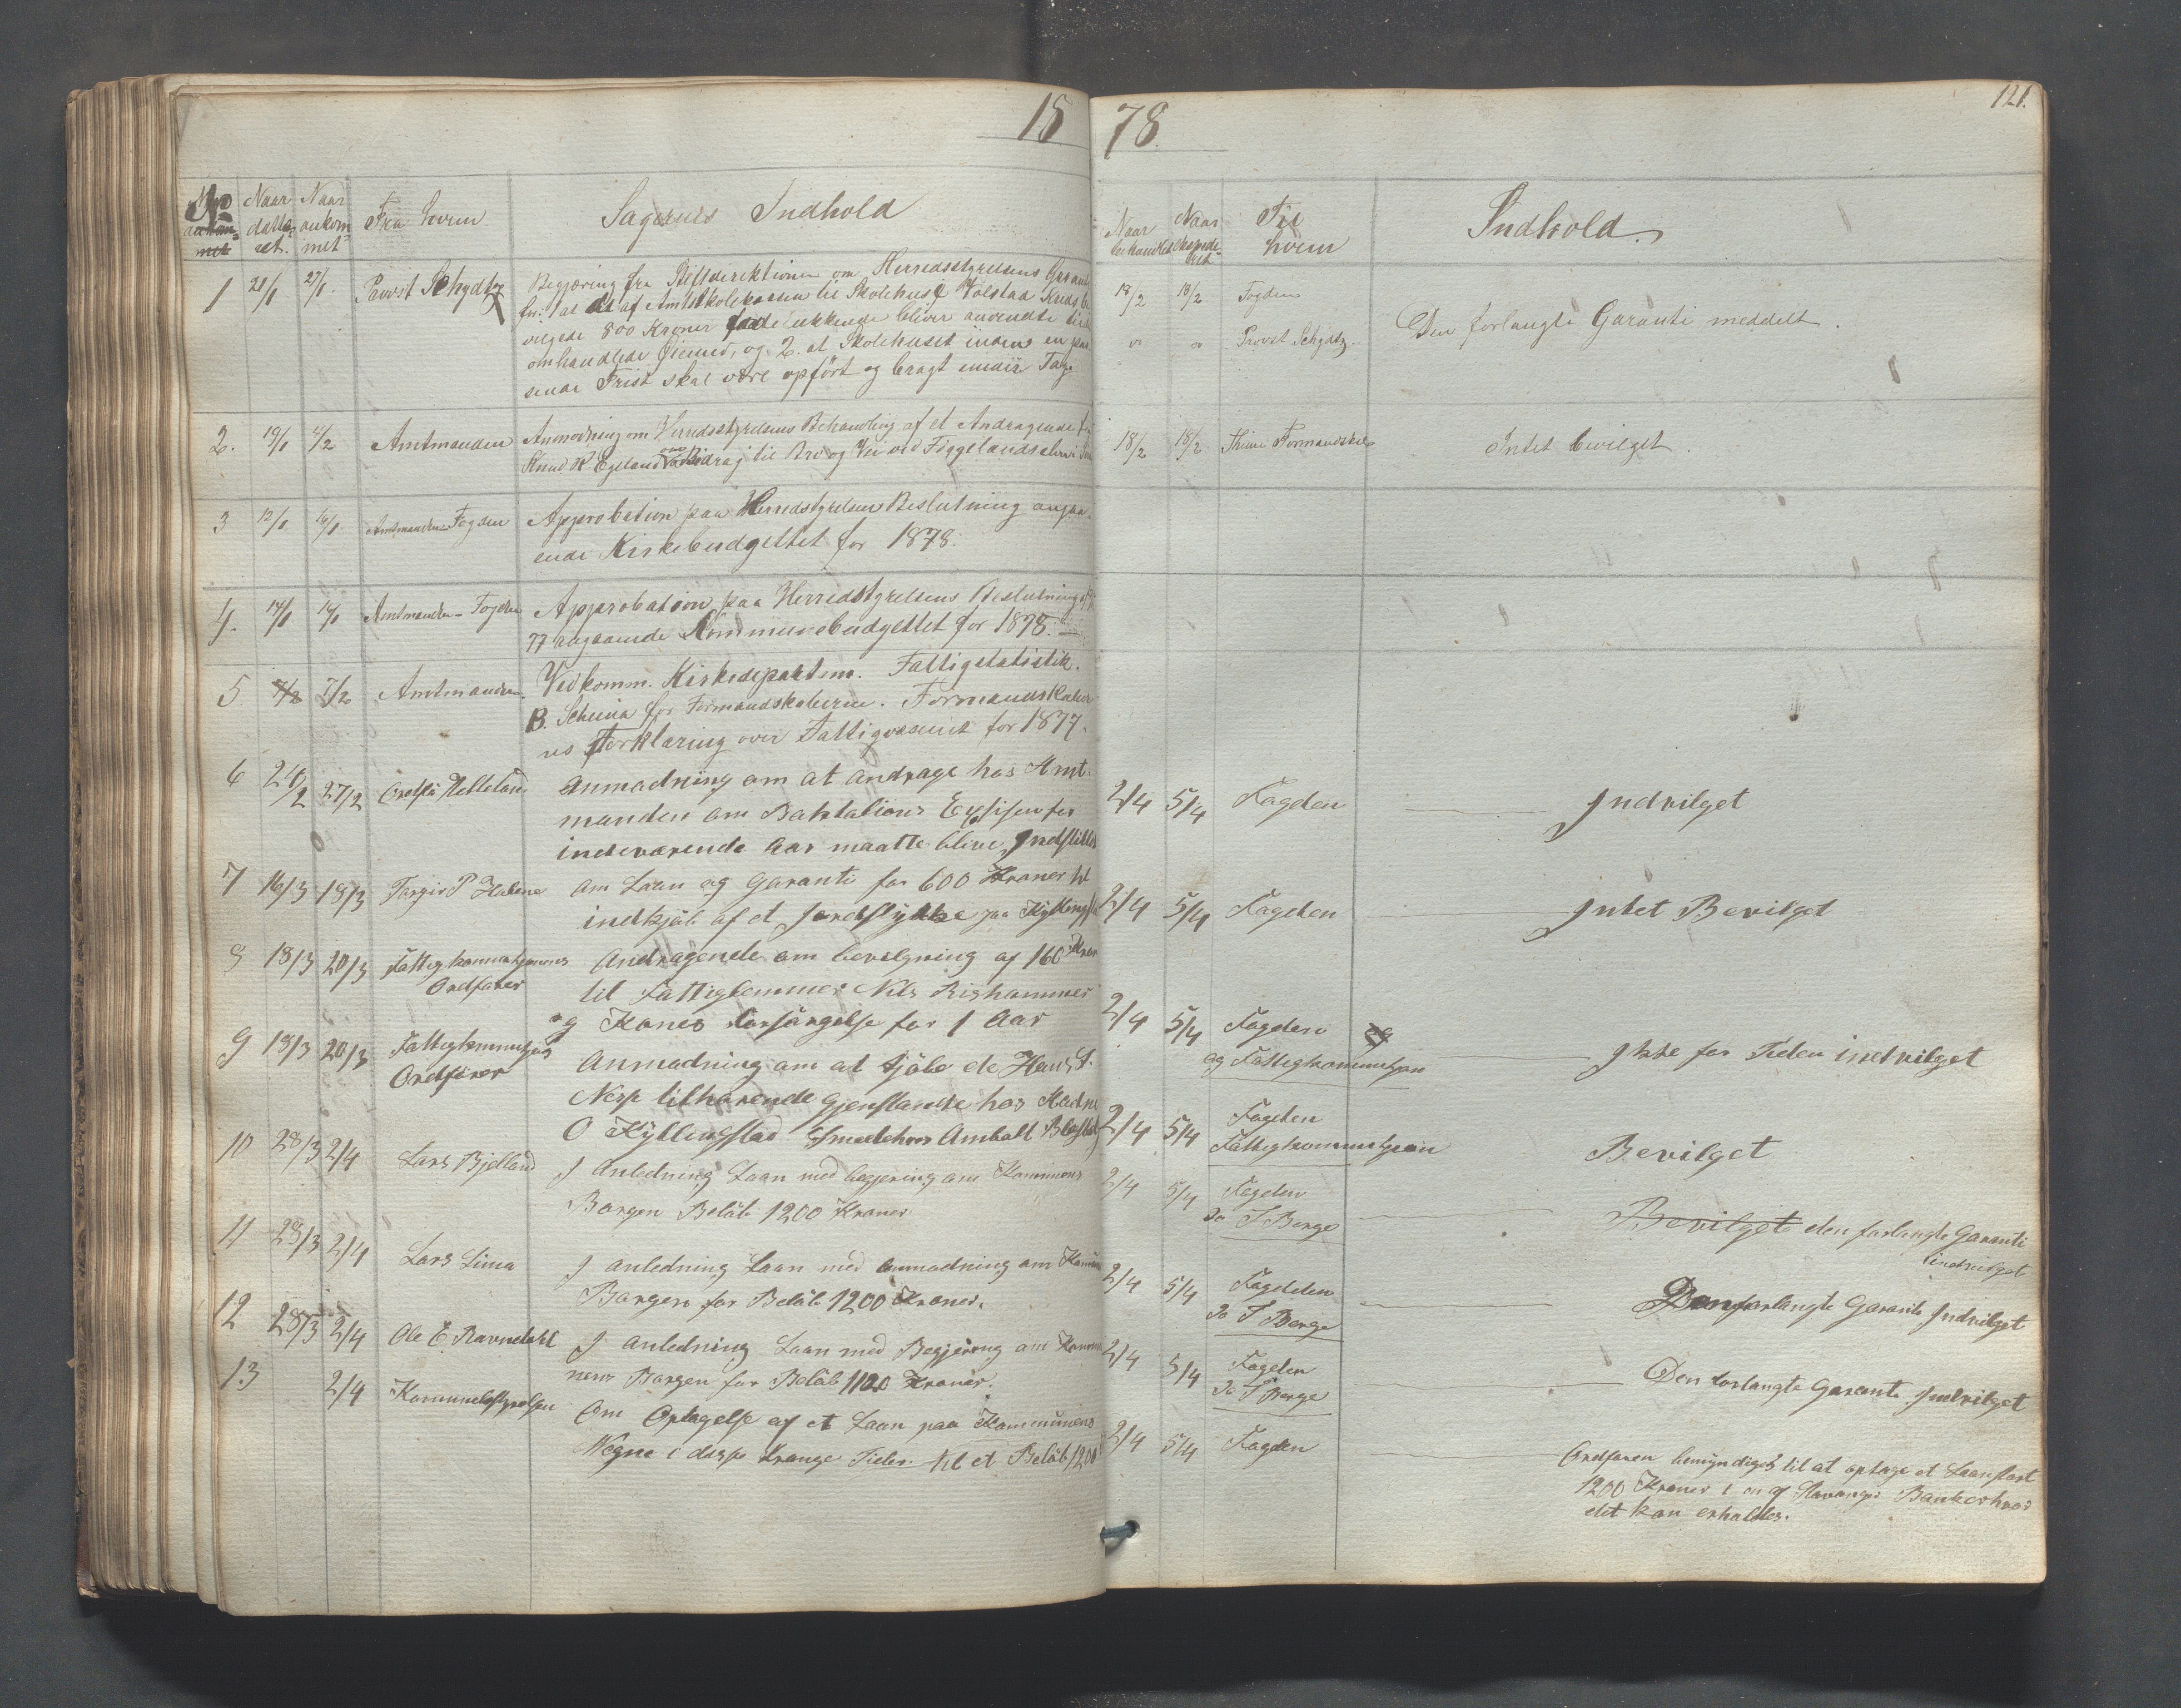 18
No
Naar dateret.
Naar ankommet
Fra hvem
Sagernes Indhold
1 21/1 27/1 Provst Schydtz Begjæring fra Stiftsdirektionen om Herredsstyrelsens Garanti
for: 1 at det af Amtsskolekassen til Skolehus
vilgede 800 Kroner blive anvendte
omhandlede Øiemed, og 2. at Skolehuset inden en
Frist skal være opført og bragt under Tag.
2. 19/1 4/2 Amtmanden Anmodning om Herredsstyrelsens Behandling af et Andragende
Knud K Egeland Bidrag til Bro og Vei ved
3 12/1 16/1 Amtmanden Fogden Approbation paa Herredsstyrelsens Beslutning angaa-
ende Kirkebudgettet for 1878.
4. 14/1 16/1 Amtmanden - Fogden Approbation paa Herredsstyrelsens Beslutning
77 angaaende Kommunebudgettet for 1878. —
5 4/2 7/2 Amtmanden Vedkomm. Kirkedepartem. Fattigstatistik.
B. Schema for Formandskaberne. Formandskaber
nes Forklaring over Fattigvæsenet for 1877.
6 24/2 27/2 Ordfø Helleland Anmodning om at andrage hos Amt-
manden om
indeværende Aar maatte blive Indstillet
7 16/3 18/3 Torgir P Haline om Laan og Garanti for 600 Kroner til
indkjøb af et Jordstykke paa
8 18/3 20/3 Fattigkommisjonens Andragende om bevilgning af 160 Kron
Ordfører til Fattiglemmer Nils Rishammer
og Kones forsørgelse for 1 Aar
9 18/3 20/3 Fattigkommisjons Anmodning om at kjøbe de Hans
Ordfører tilhørende Gjenstande hos
O Kyllingstad
10 28/3 2/4 Lars Bjelland I Anledning Laan med begjering om Kommunens
Borgen Beløb 1200 Kroner
11 28/3 2/4 Lars Lima I anledning Laan med anmodning om Kommun
Borgen for Beløb 1200 Kroner.
12 28/3 2/4 Ole E. Ravndahl I anledning Laan med Begjering om Kommu
nens Borgen for Beløb 1120 Kroner.
13 2/4 Kommunebestyrelsen Om Optagelse af et Laan paa Kommunens
Vegne i disse trange Tider til et Beløb 1200
78. 121.
Naar behandlet
Naar expederet
Til hvem
Indhold.
18/2 18/2 Fogden
" " Provst Schydtz. Den forlangte Garanti meddelt.
18/2 18/2 Thime Formandskab Intet bevilget.
2/4 5/4 Fogden Indvilget
2/4 5/4 Fogden Intet Bevilget
2/4 5/4 Fogden
og Fattigkommisjon Ikke for Tiden indvilget
2/4 5/4 Fogden
Fattigkommisjonen Bevilget
2/4 5/4 Fogden
Do T Berge Bevilget den forlangte Garanti
indvilget
2/4 5/4 Fogden
Do T Berge Den forlangte Garanti Indvilget
2/4 5/4 Fogden
Do T Berge Den forlangte Garanti Indvilget
2/4 5/4 Fogden Ordføren bemyndiges til at optage et Laan stort
1200 Kroner i en af Stavanger Banker hvor
det kan erholdes.